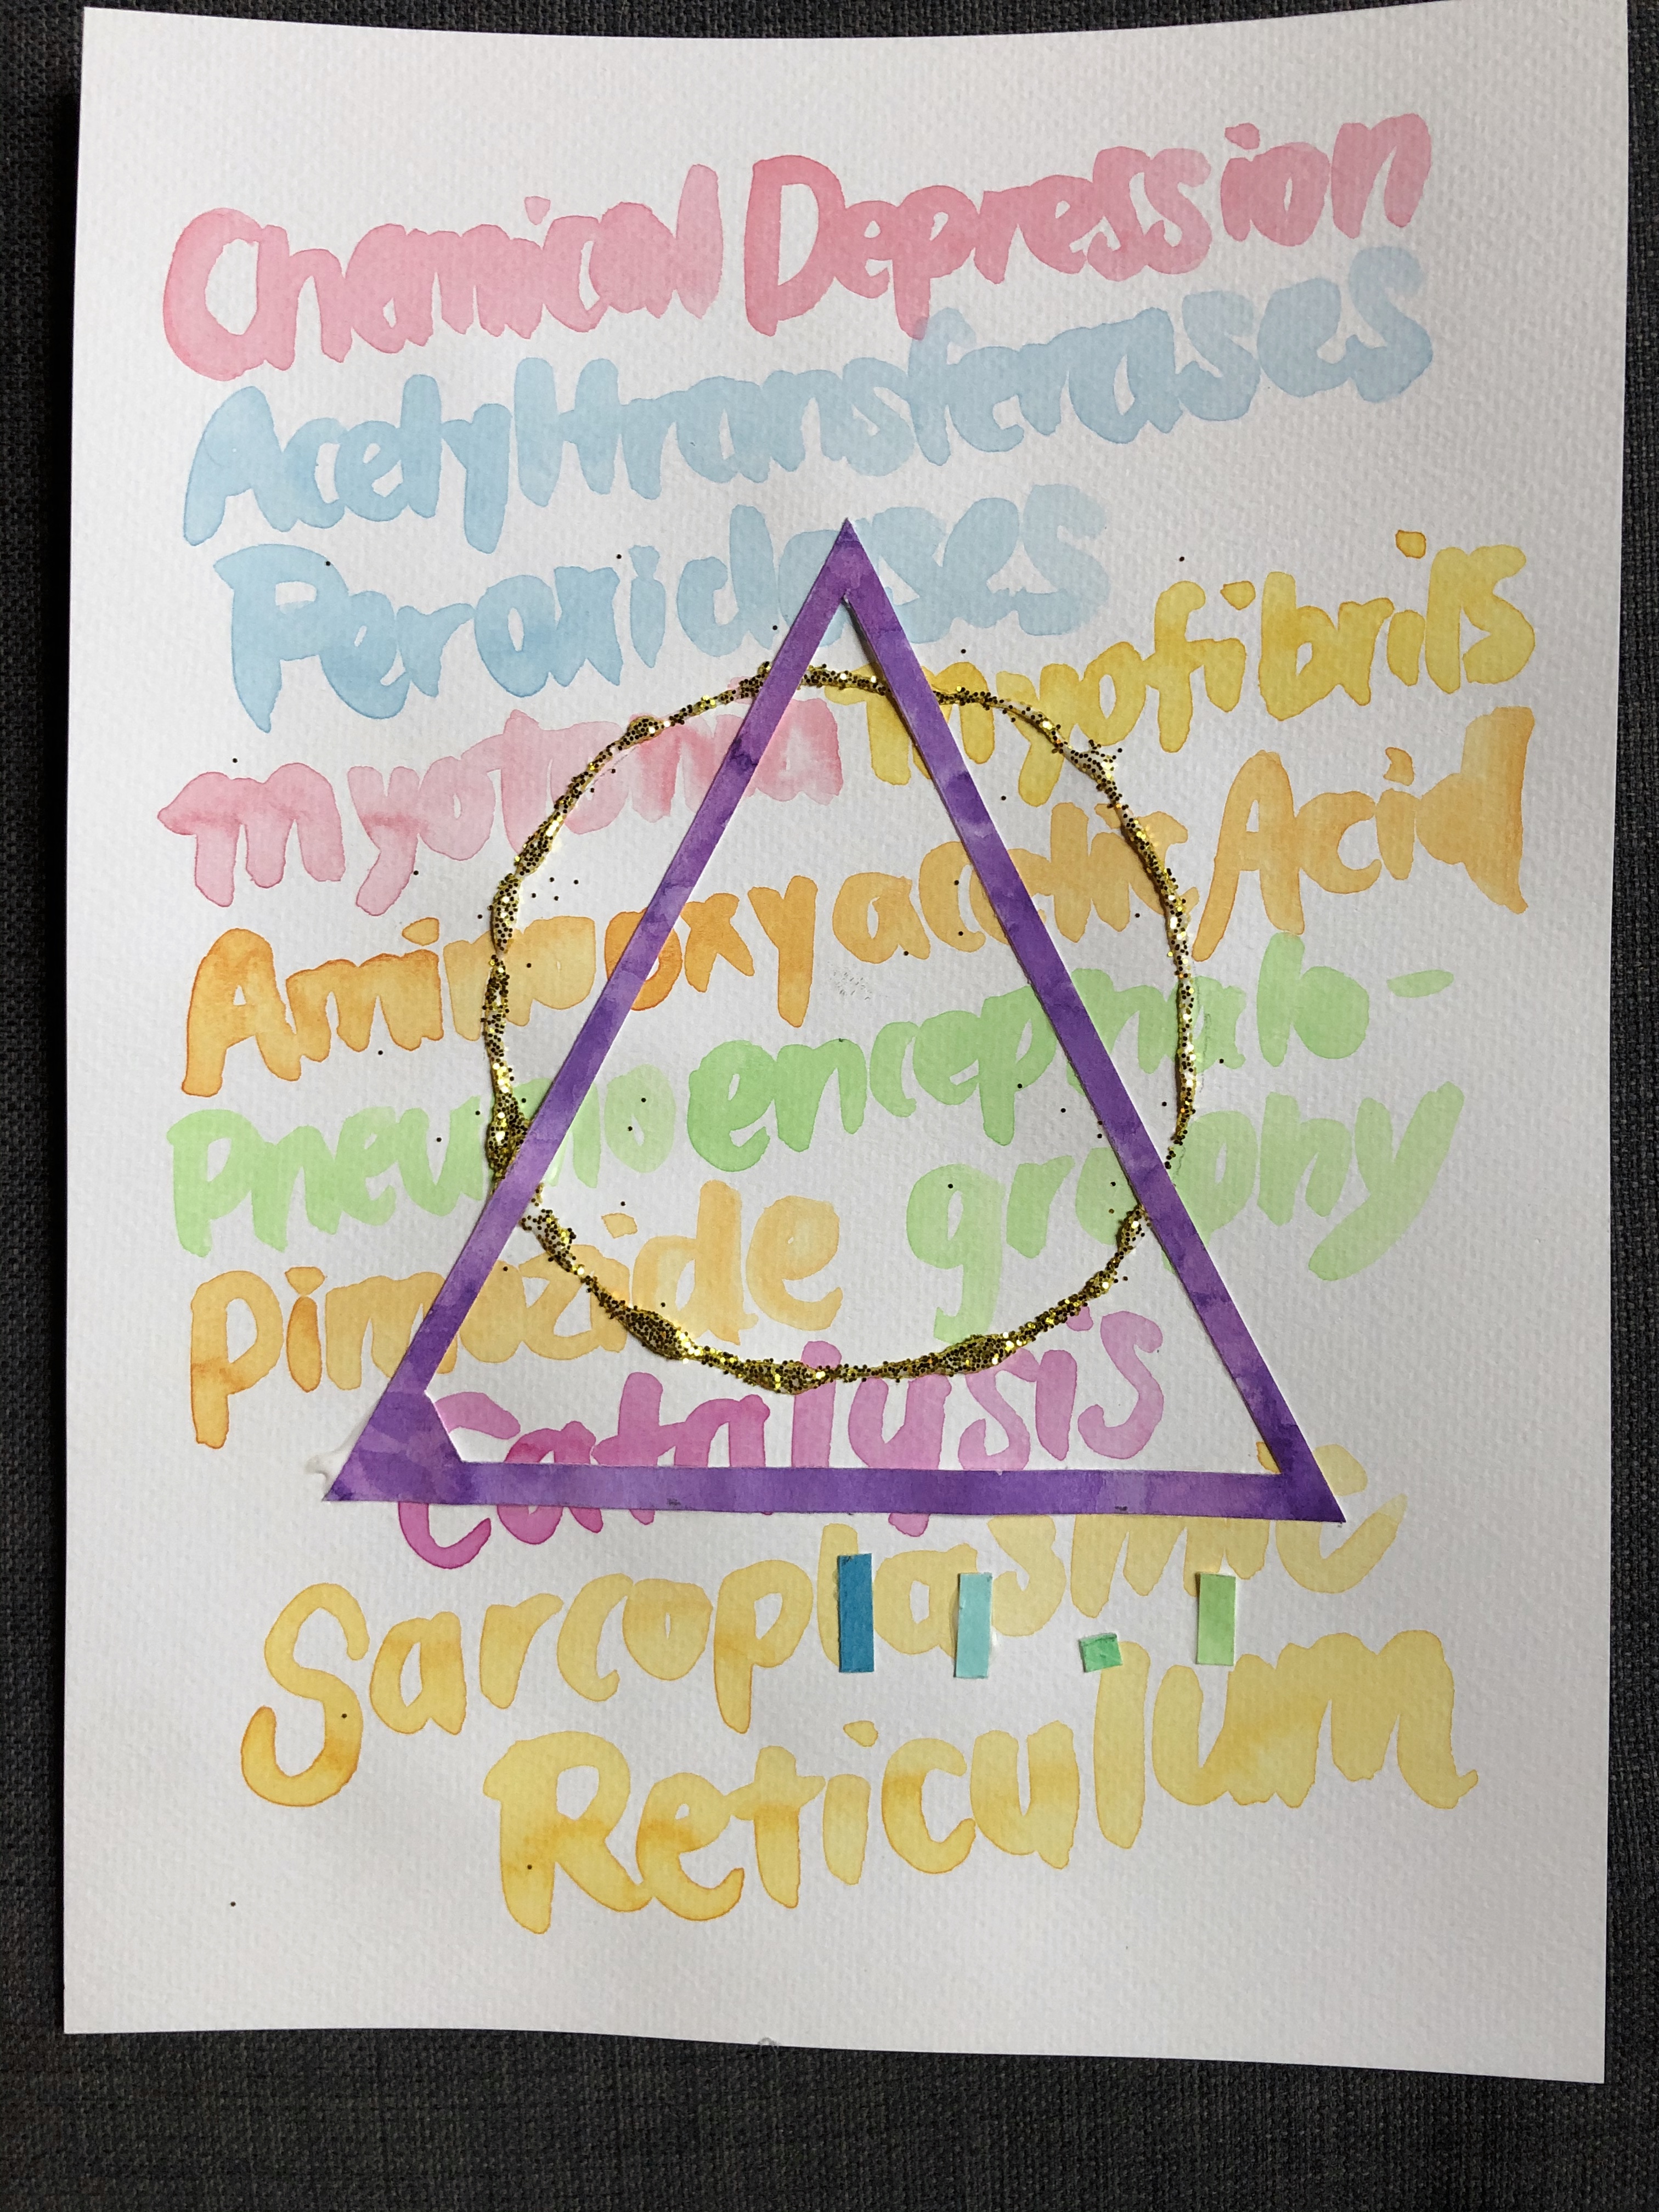 Chemical Depression
Acetyltransferases
Peroxidases
myotonia myofibrils
Aminooxyacetic Acid
Pneumoencephalo-
graphy
Pimozide
Catalysis
Sarcoplasmic
Reticulum